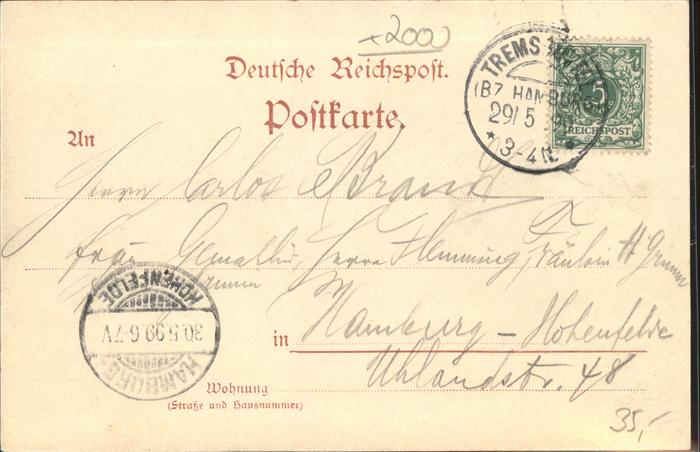 +2000
Deutsche Reichspost.
Postkarte.
TREMS
(BZ. HAMBURG)
29/5
* 3-4 N. *
5
REICHSPOST
An
Herrn Carlos Brand
Frau Gemahlin, Herrn Flemming, Fräulein H Grimm
HAMBURG
30.5.99.6-7V.
HOHENFELDE
in Hamburg-Hohenfelde
Uhlandstr. 48
Wohnung
(Straße und Hausnummer)
35,-